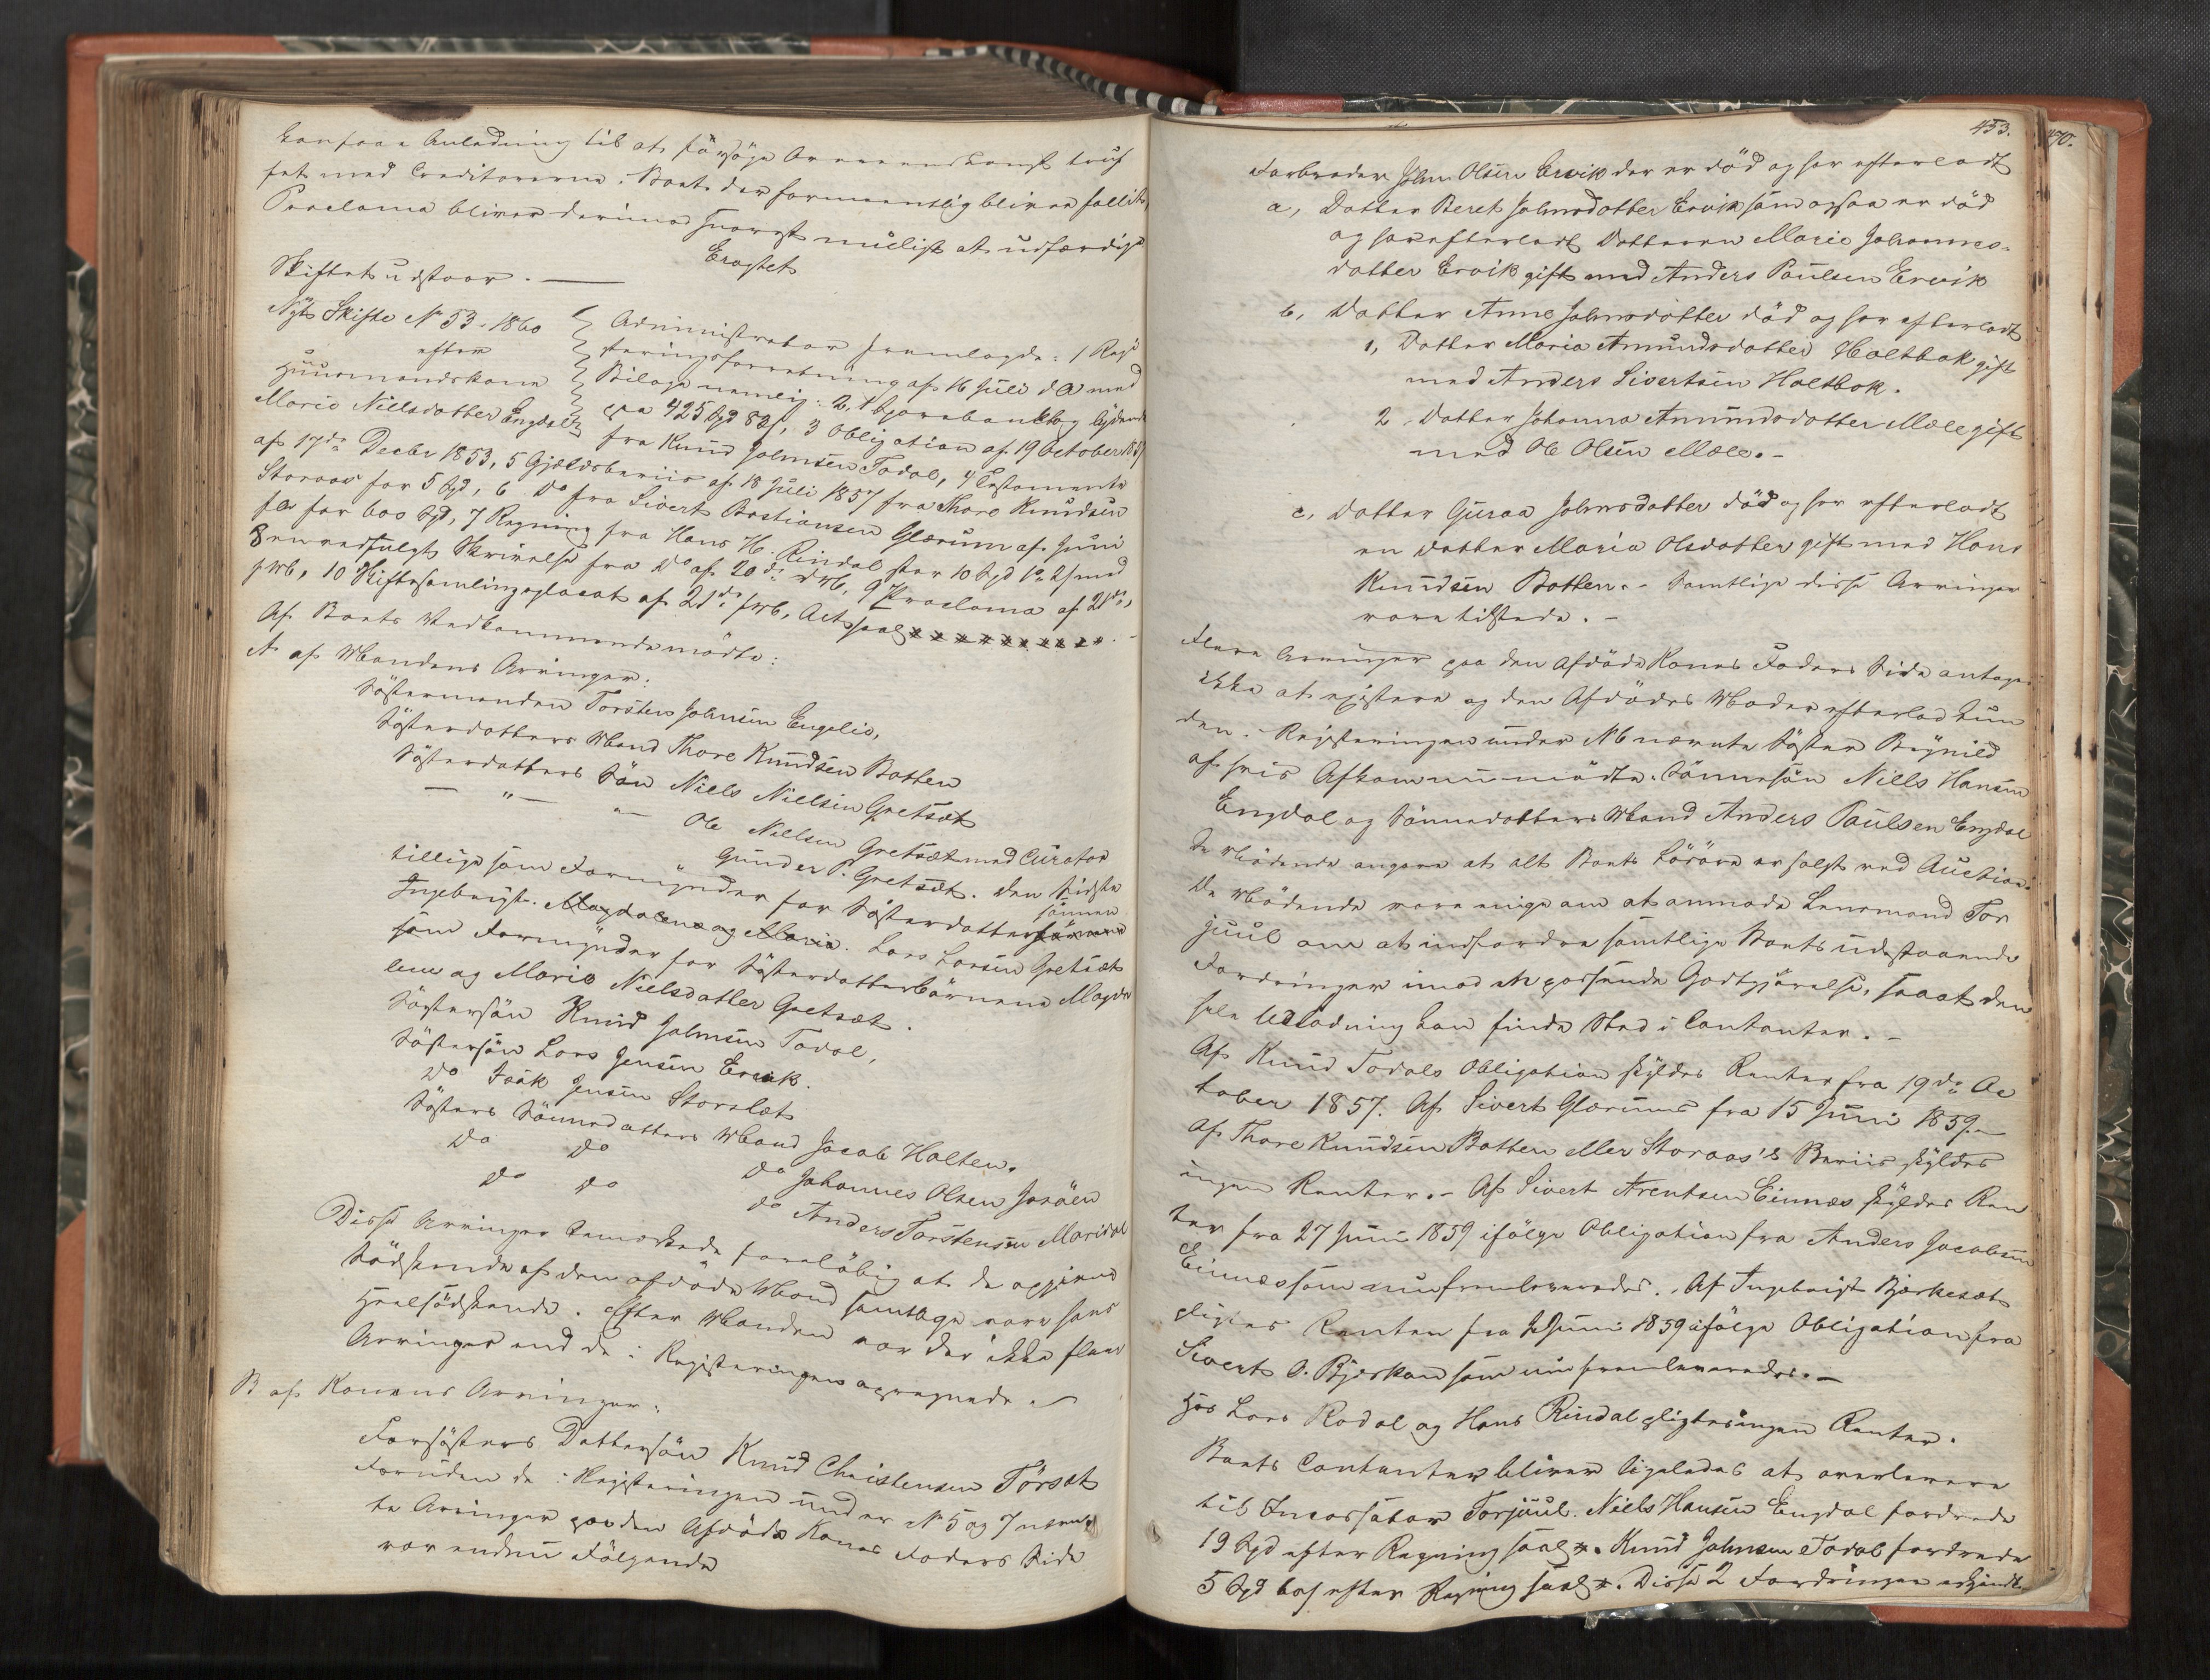 kanhaa Anledning til at forsøge Overeenskomst truf
fet med Creditorerne. Boets der formeentlig bliver fallit,
Proclama bliver derimod snarest muligst at udfærdige
Skiftet udstaar. — Eragtet
Nyt Skifte No 53. 1860
efter
Huusmandskone
Marie Nielsdatter Engdal
Administrator fremlagde: 1 Regi
steringsforretning af 16 Juli d. A. med
Bilage nemlig: 2, 1 Sparebankbog lydende
paa 425 Spd 82 s, 3 Obligation af 19 October 1857
fra Knud Johnsen Todal, 4 Testamente
af 17de Decbr 1853, 5 Gjældsbeviis af 18 Juli 1857 fra Thore Knudsen
Storaas for 5 Spd, 6 Do fra Sivert Bastiansen Glærum af Juni
for 600 Spd, 7 Regning fra Hans H. Rindal stor 10 Spd med
8 medfulgt Skrivelse fra Do af 20de 9 Proclama af 21de
10 Skiftesamlingsplacat af 21de Act saal.
Af Boets Vedkommende mødte:
A af Mandens Arvinger:
Søstermanden Torsten Johnsen Engelio,
Søsterdatters Mand Thore Knudsen Botten
Søsterdatters Søn Niels Nielsen Gretsæt
— " — " — Ole Nielsen Gretsæt med Curator
Gunder P. Gretsæt. Den sidste
tillige som Formynder for Søsterdattersønnen
Ingebrigt. Magdalena og Marie. Lars Larsen Gretsæt
som Formynder for Søsterdatterbørnene Magda
lena og Marie Nielsdatter Gretsæt.
Søstersøn Knud Johnsen Todal,
Søstersøn Lars Jensen Ervik.
Do Isak Jensen Storslæt
Søsters Sønnedatters Mand Jacob Halten.
Do Do Do Johannes Olsen
Do Do Do Anders Torstensen Moridal
Disse Arvinger bemærkede foreløbig at de opgivne
Sødskende af den afdøde Mand samtlige vare hans
Heelsødskende. Efter Manden var der ikke flere
Arvinger end de i Registeringen opregnede.
B af Konens Arvinger:
Farsøsters Dattersøn Knud Christensen Tørset
Foruden de i Registeringen under No 5 og 7 nævn
te Arvinger paa den Afdøde Kones Faders Side
var endnu Følgende
453.
470.
Farbroder John Olsen Ervik der er død og har efterladt
a, Datter Beret Johnsdatter Ervik som ogsaa er død
og har efterladt Datteren Marie Johannes-
datter Ervik gift med Anders Paulsen Ervik
b, Datter Anne Johnsdatter død og har efterladt
1, Datter Maria Amundsdatter Holtbak gift
med Anders Sivertsen Holtbak.
2, Datter Johanna Amundsdatter Mæle gift
med Ole Olsen Mæle. -
c, Datter Guraa Johnsdatter død og har efterladt
en Datter Maria Olsdatter gift med Hans
Knudsen Botten. - Samtlige disse Arvinger
vare tilstede. -
Flere Arvinger paa den Afdøde Kones Faders Side antages
ikke at existere og den Afdødes Moder efterlod kun
den i Registeringen under No 6 nævnte Søster Brynild
af hvis Afkom nu mødte: Sønnesøn Niels Hansen
Engdal og Sønnedatters Mand Anders Paulsen Engdal
De Mødende angave at alt Boets Løsøre er solgt ved Auction.
De Mødende vare enige om at anmode Lensmand Tor
juul om at indfordre samtlige Boets udestaaende
Fordringer imod en passende Godtgjørelse, saaat den
hele Udlodning kan finde Sted i Contanter. -
Af Knud Todals Obligation skyldes Renter fra 19de Oc
tober 1857. Af Sivert Glærums fra 15 Juni 1859. -
Af Thore Knudsen Botten eller Storaas's Beviis skyldes
ingen Renter. - Af Sivert Arentsen Einnæs skyldes Ren
ter fra 27 Juni 1859 ifølge Obligation fra Anders Jacobsen
Einnæs som nu fremleveredes. Af Ingebrigt Bjørkesæt
pligtes Renter fra Juni 1859 ifølge Obligation fra
Sivert O. Bjørkan som nu fremleveredes. -
Hos Lars Rodal og Hans Rindal pligtes ingen Renter.
Boets Contanter bliver ligeledes at overlevere
til Incassator Torjuul. Niels Hansen Engdal fordrede
19 Spd efter Regning saal. Knud Johnsen Todal fordrede
5 Spd 60 s efter Regning saal. Disse 2 Fordringer erkjendt